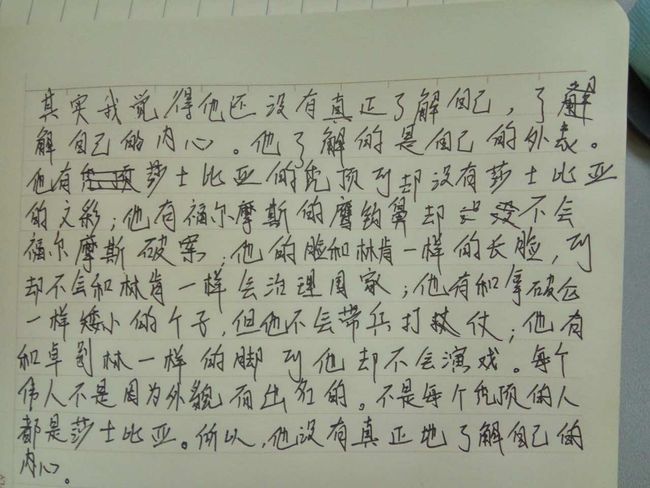 其实我觉得他还没有真正了解自己，了解
解自己的内心。他了解的是自己的外表。
他有莎士比亚的秃顶到却没有莎士比亚
的文彩；他有福尔摩斯的鹰钩鼻却不会
福尔摩斯破案；他的脸和林肯一样的长脸，到
却不会和林肯一样会治理国家；他有和拿破仑
一样矮小的个子，但他不会带兵打仗；他有
和卓别林一样的脚到他却不会演戏。每个
伟人不是因为外貌而出名的。不是每个秃顶的人
都是莎士比亚。所以，他没有真正地了解自己的
内心。